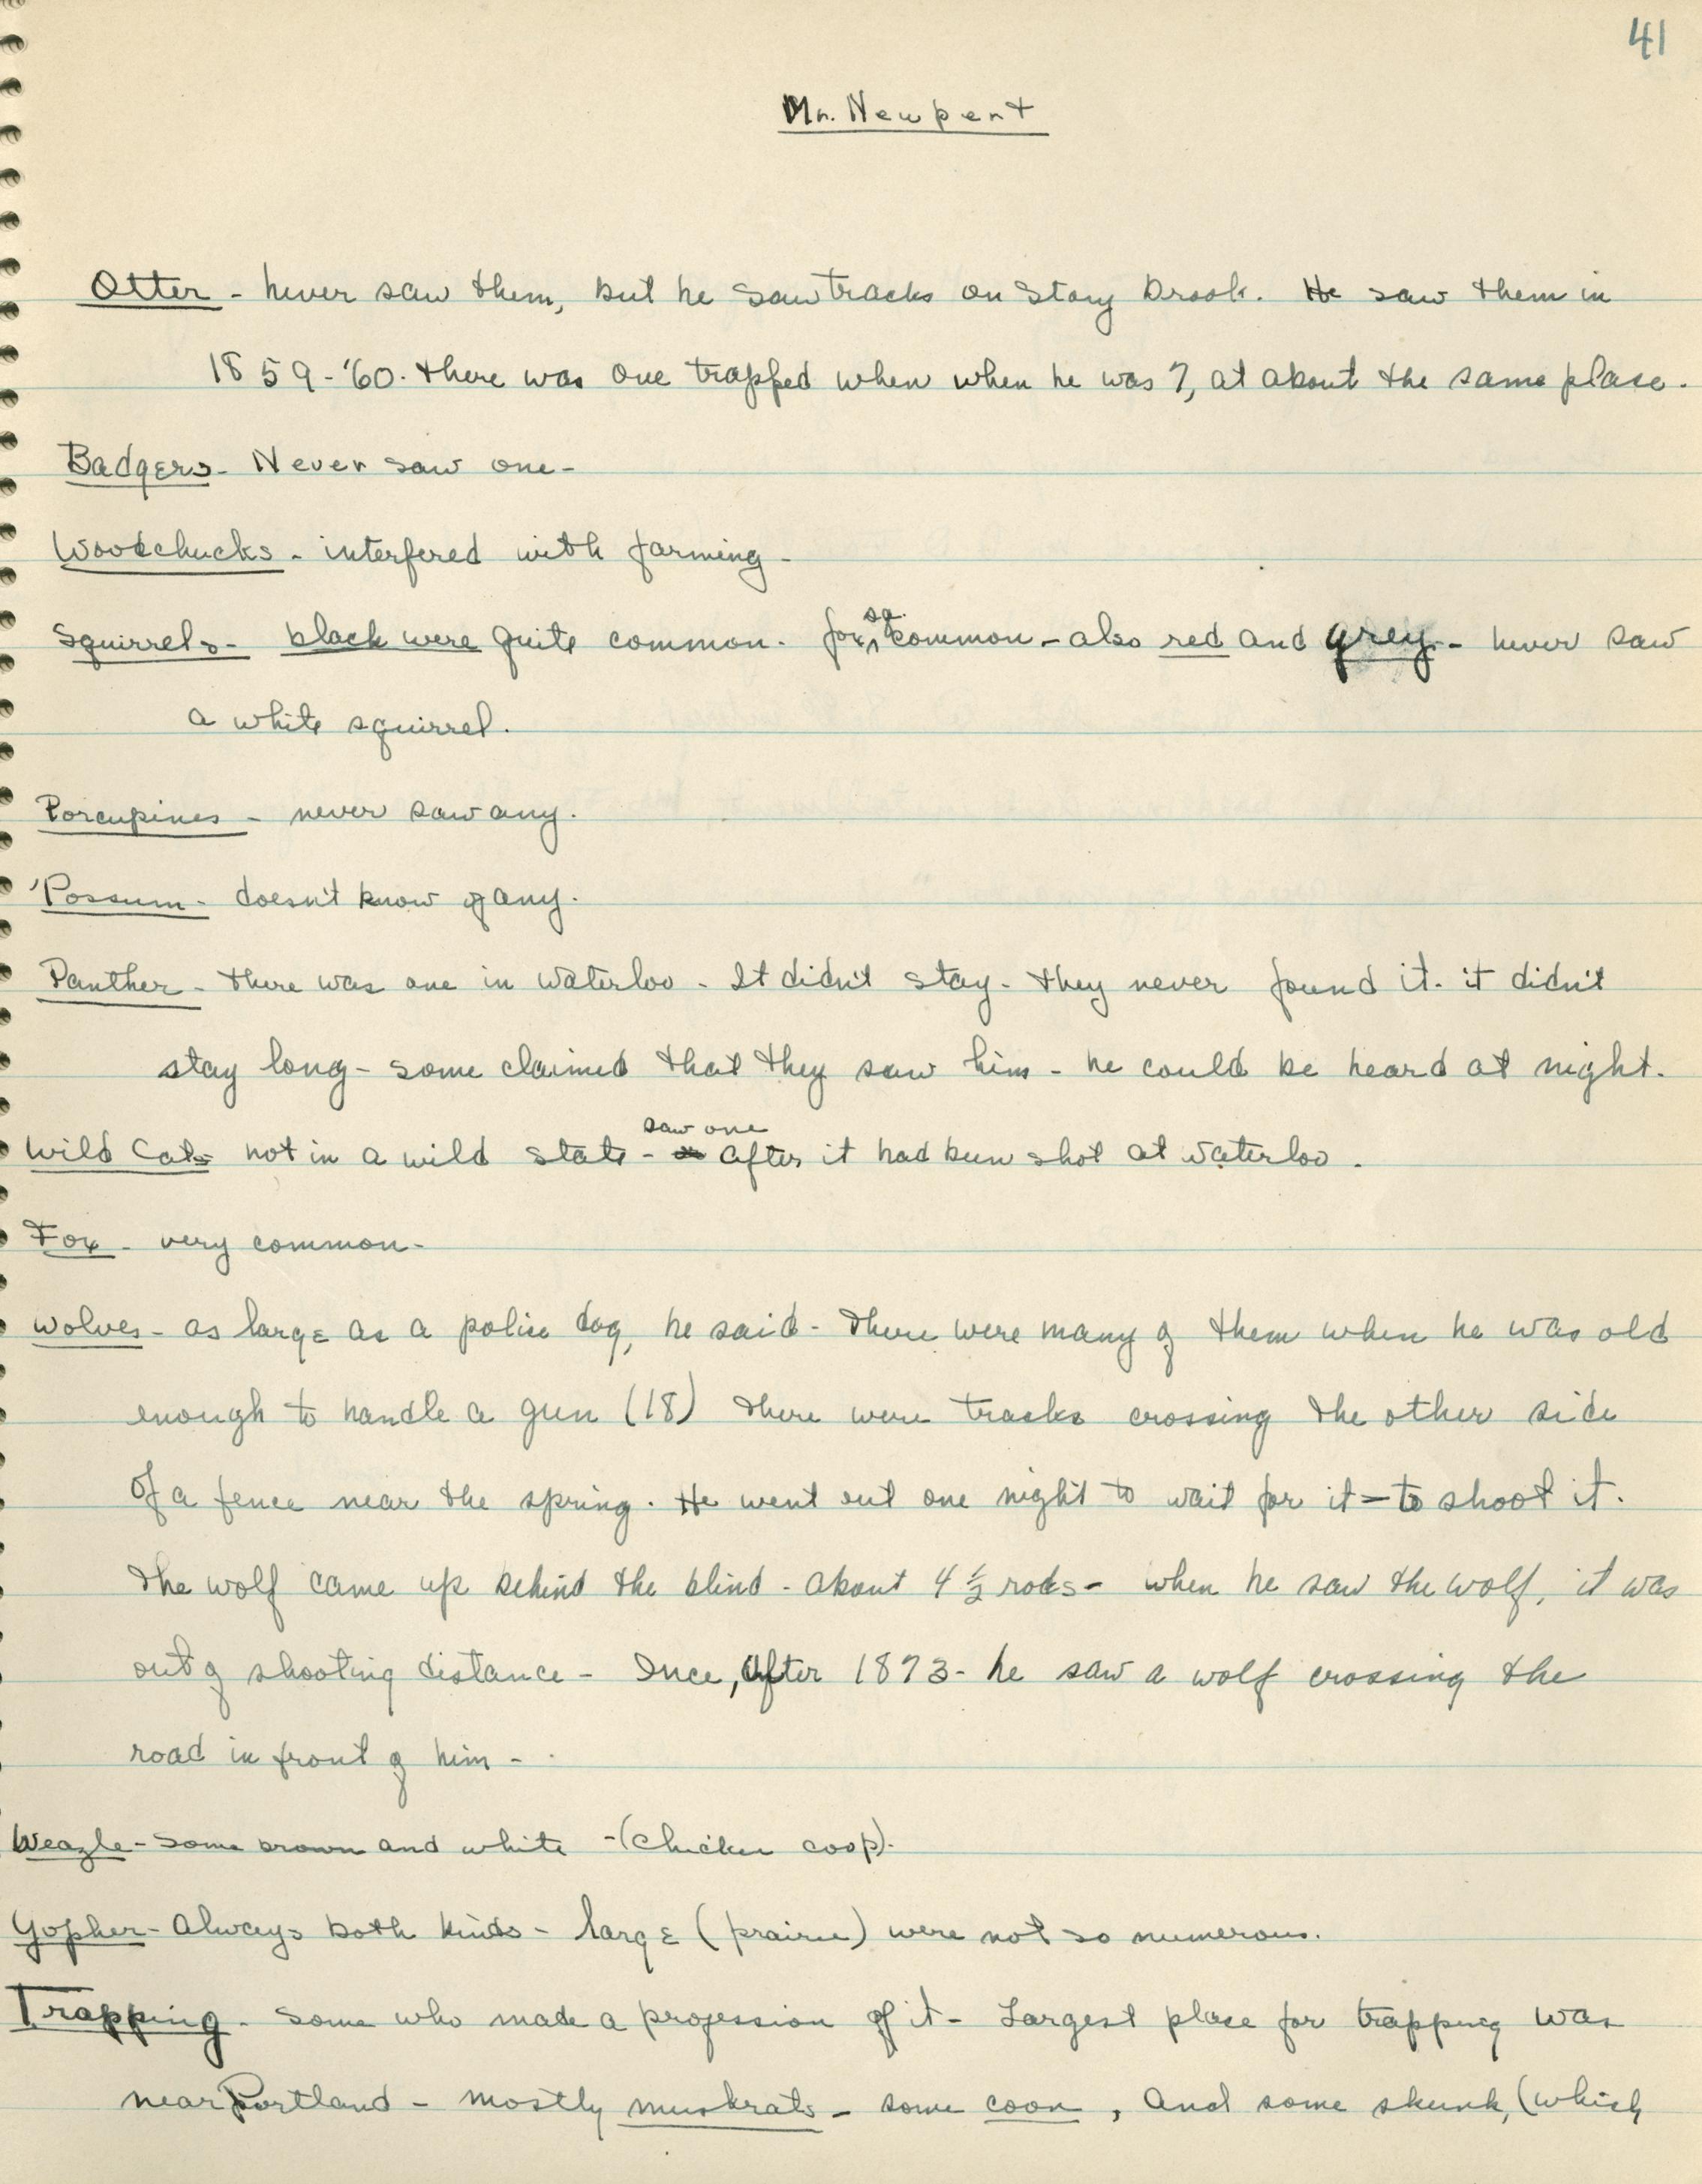 41
Mr. Newpert
Otter - never saw them, but he saw tracks on Stony Brook. He saw them in
1859-'60. There was one trapped when when he was 7, at about the same place.
Badgers - Never saw one -
Woodchucks - interfered with farming -
Squirrels - black were quite common. fox sq. common - also red and grey - never saw
a white squirrel.
Porcupines - never saw any.
'Possum - doesn't know of any.
Panther - There was one in Waterloo - It didn't stay. They never found it. it didn't
stay long - some claimed that they saw him - he could be heard at night.
Wild Cats not in a wild state - saw one after it had been shot at Waterloo.
Fox - very common -
Wolves - as large as a police dog, he said - There were many of them when he was old
enough to handle a gun (18) There were tracks crossing the other side
of a fence near the spring. He went out one night to wait for it - to shoot it.
The wolf came up behind the blind - about 4 1/2 rods - when he saw the wolf, it was
out of shooting distance - Once, after 1873 - he saw a wolf crossing the
road in front of him -
Weazle - some brown and white - (Chicken coop).
Gopher - Always both kinds - large (prairie) were not so numerous.
Trapping - some who made a profession of it - Largest place for trapping was
near Portland - mostly muskrats - some coon, and some skunk, (which